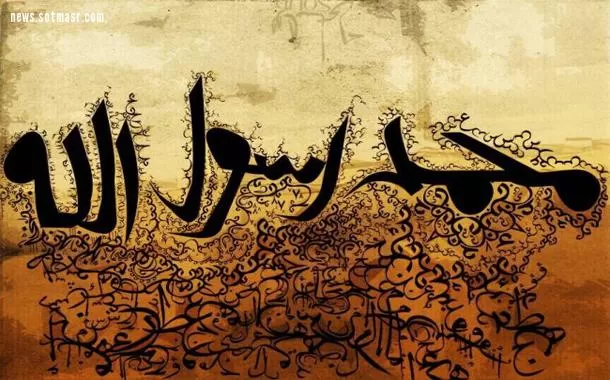 news.sotmasr.com
محمد رسول الله